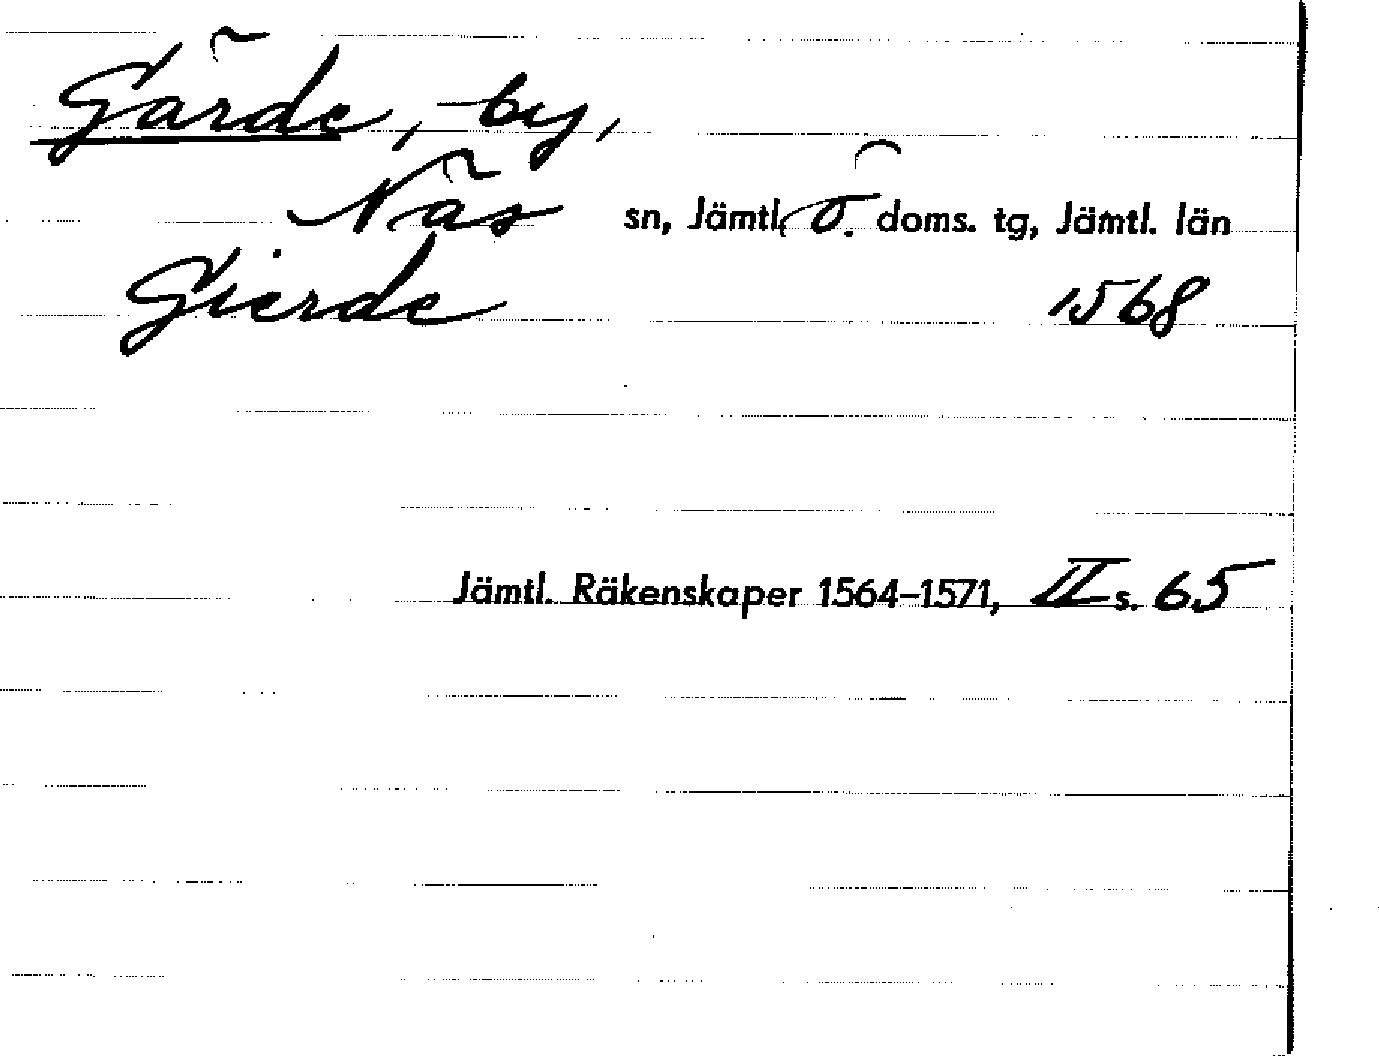 Gärde, by,
Näs sn, Jämtl. ö. doms. tg, Jämtl. län
Gierde 1568
Jämtl. Räkenskaper 1564–1571, II s. 65